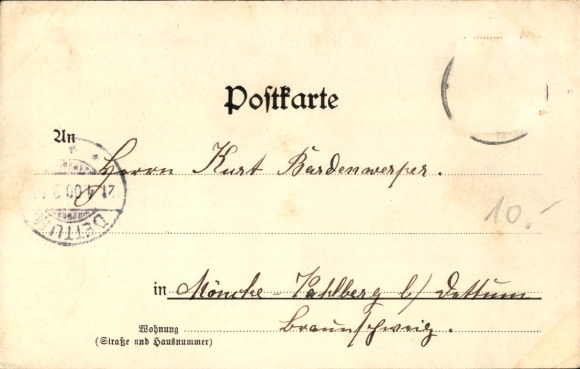 Postkarte
An
Herrn Kurt Bardenwerper.
10.-
in Mönche-Vahlberg b/ Dettum
Braunschweig.
Wohnung
(Straße und Hausnummer)
DETTUM